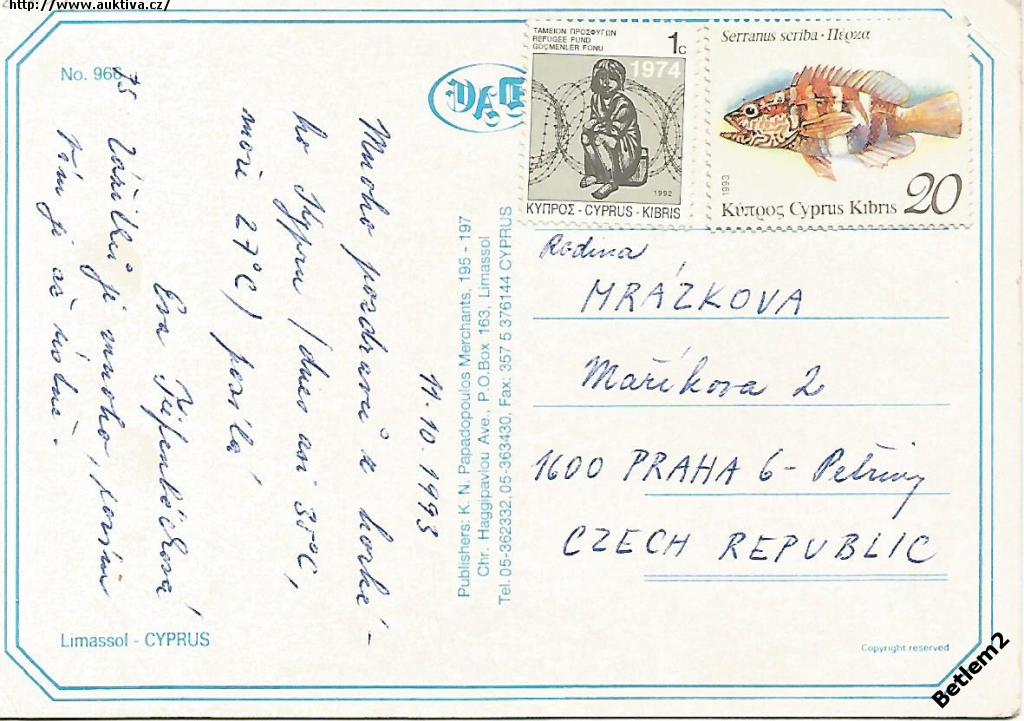 http://www.auktiva.cz/
No. 966
11.10.1993
Mnoho pozdravů z horké-
ho Kypru /dnes asi 35°C,
moře 27°C/ posílá
Eva
Zážitků je mnoho, povím
Vám je až ústně.
Limassol - CYPRUS
Publishers: K. N. Papadopoulos Merchants, 195 - 197
Chr. Haggipavlou Ave., P.O.Box 163, Limassol
Tel. 05-362332, 05-363430, Fax: 357 5 376144 CYPRUS
ΤΑΜΕΙΟΝ ΠΡΟΣΦΥΓΩΝ
REFUGEE FUND
GÖÇMENLER FONU
1c
1974
1992
ΚΥΠΡΟΣ - CYPRUS - KIBRIS
Serranus scriba · Πέρκα
1993
Κύπρος Cyprus Kıbrıs 20
Rodina
MRÁZKOVA
Maříkova 2
1600 PRAHA 6 - Petřiny
CZECH REPUBLIC
Copyright reserved
Betlem2